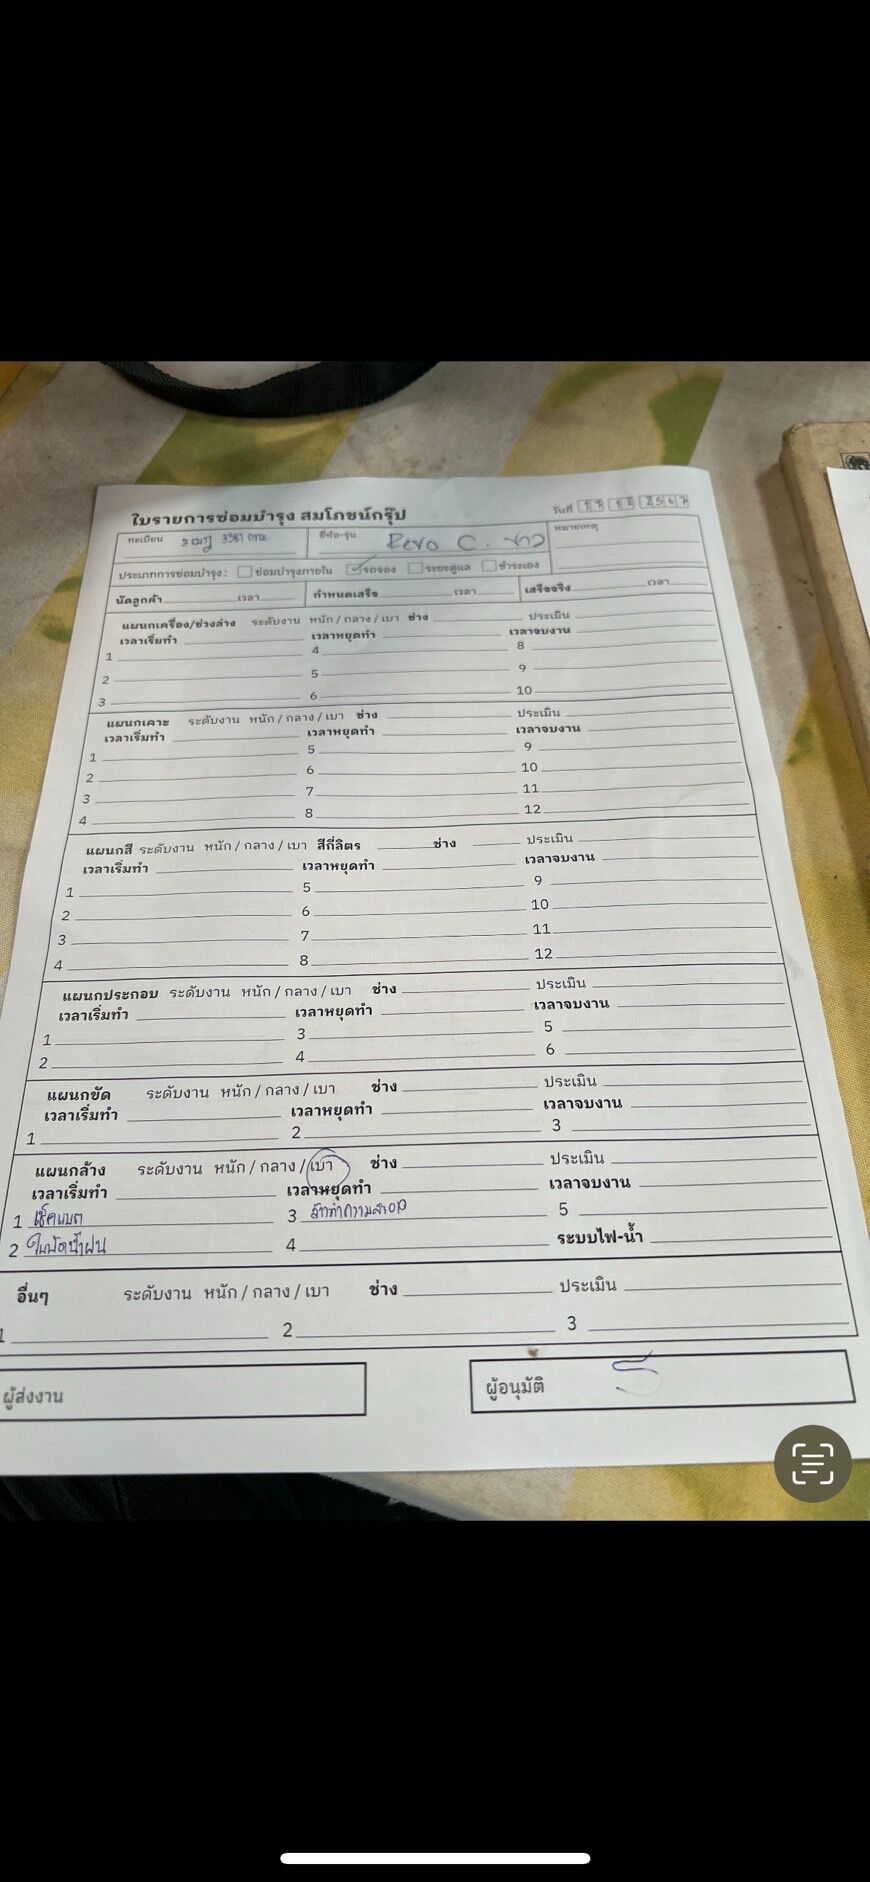 ใบรายการซ่อมบำรุง สมโภชน์กรุ๊ป วันที่ 2567
ทะเบียน 3 ฒฎ 3361 กทม. ยี่ห้อ-รุ่น Revo C. ขาว หมายเหตุ
ประเภทการซ่อมบำรุง : ซ่อมบำรุงภายใน รถจอง ระยะดูแล ชำระเอง
นัดลูกค้า เวลา กำหนดเสร็จ เวลา เสร็จจริง เวลา
แผนกเครื่อง/ช่วงล่าง ระดับงาน หนัก / กลาง / เบา ช่าง ประเมิน
เวลาเริ่มทำ เวลาหยุดทำ เวลาจบงาน
1 4 8
2 5 9
3 6 10
แผนกเคาะ ระดับงาน หนัก / กลาง / เบา ช่าง ประเมิน
เวลาเริ่มทำ เวลาหยุดทำ เวลาจบงาน
1 5 9
2 6 10
3 7 11
4 8 12
แผนกสี ระดับงาน หนัก / กลาง / เบา สีกี่ลิตร ช่าง ประเมิน
เวลาเริ่มทำ เวลาหยุดทำ เวลาจบงาน
1 5 9
2 6 10
3 7 11
4 8 12
แผนกประกอบ ระดับงาน หนัก / กลาง / เบา ช่าง ประเมิน
เวลาเริ่มทำ เวลาหยุดทำ เวลาจบงาน
1 3 5
2 4 6
แผนกขัด ระดับงาน หนัก / กลาง / เบา ช่าง ประเมิน
เวลาเริ่มทำ เวลาหยุดทำ เวลาจบงาน
1 2 3
แผนกล้าง ระดับงาน หนัก / กลาง / เบา ช่าง ประเมิน
เวลาเริ่มทำ เวลาหยุดทำ เวลาจบงาน
1 เช็คแบต 3 ล้างทำความสะอาด 5
2 ใบปัดน้ำฝน 4 ระบบไฟ-น้ำ
อื่นๆ ระดับงาน หนัก / กลาง / เบา ช่าง ประเมิน
1 2 3
ผู้ส่งงาน ผู้อนุมัติ